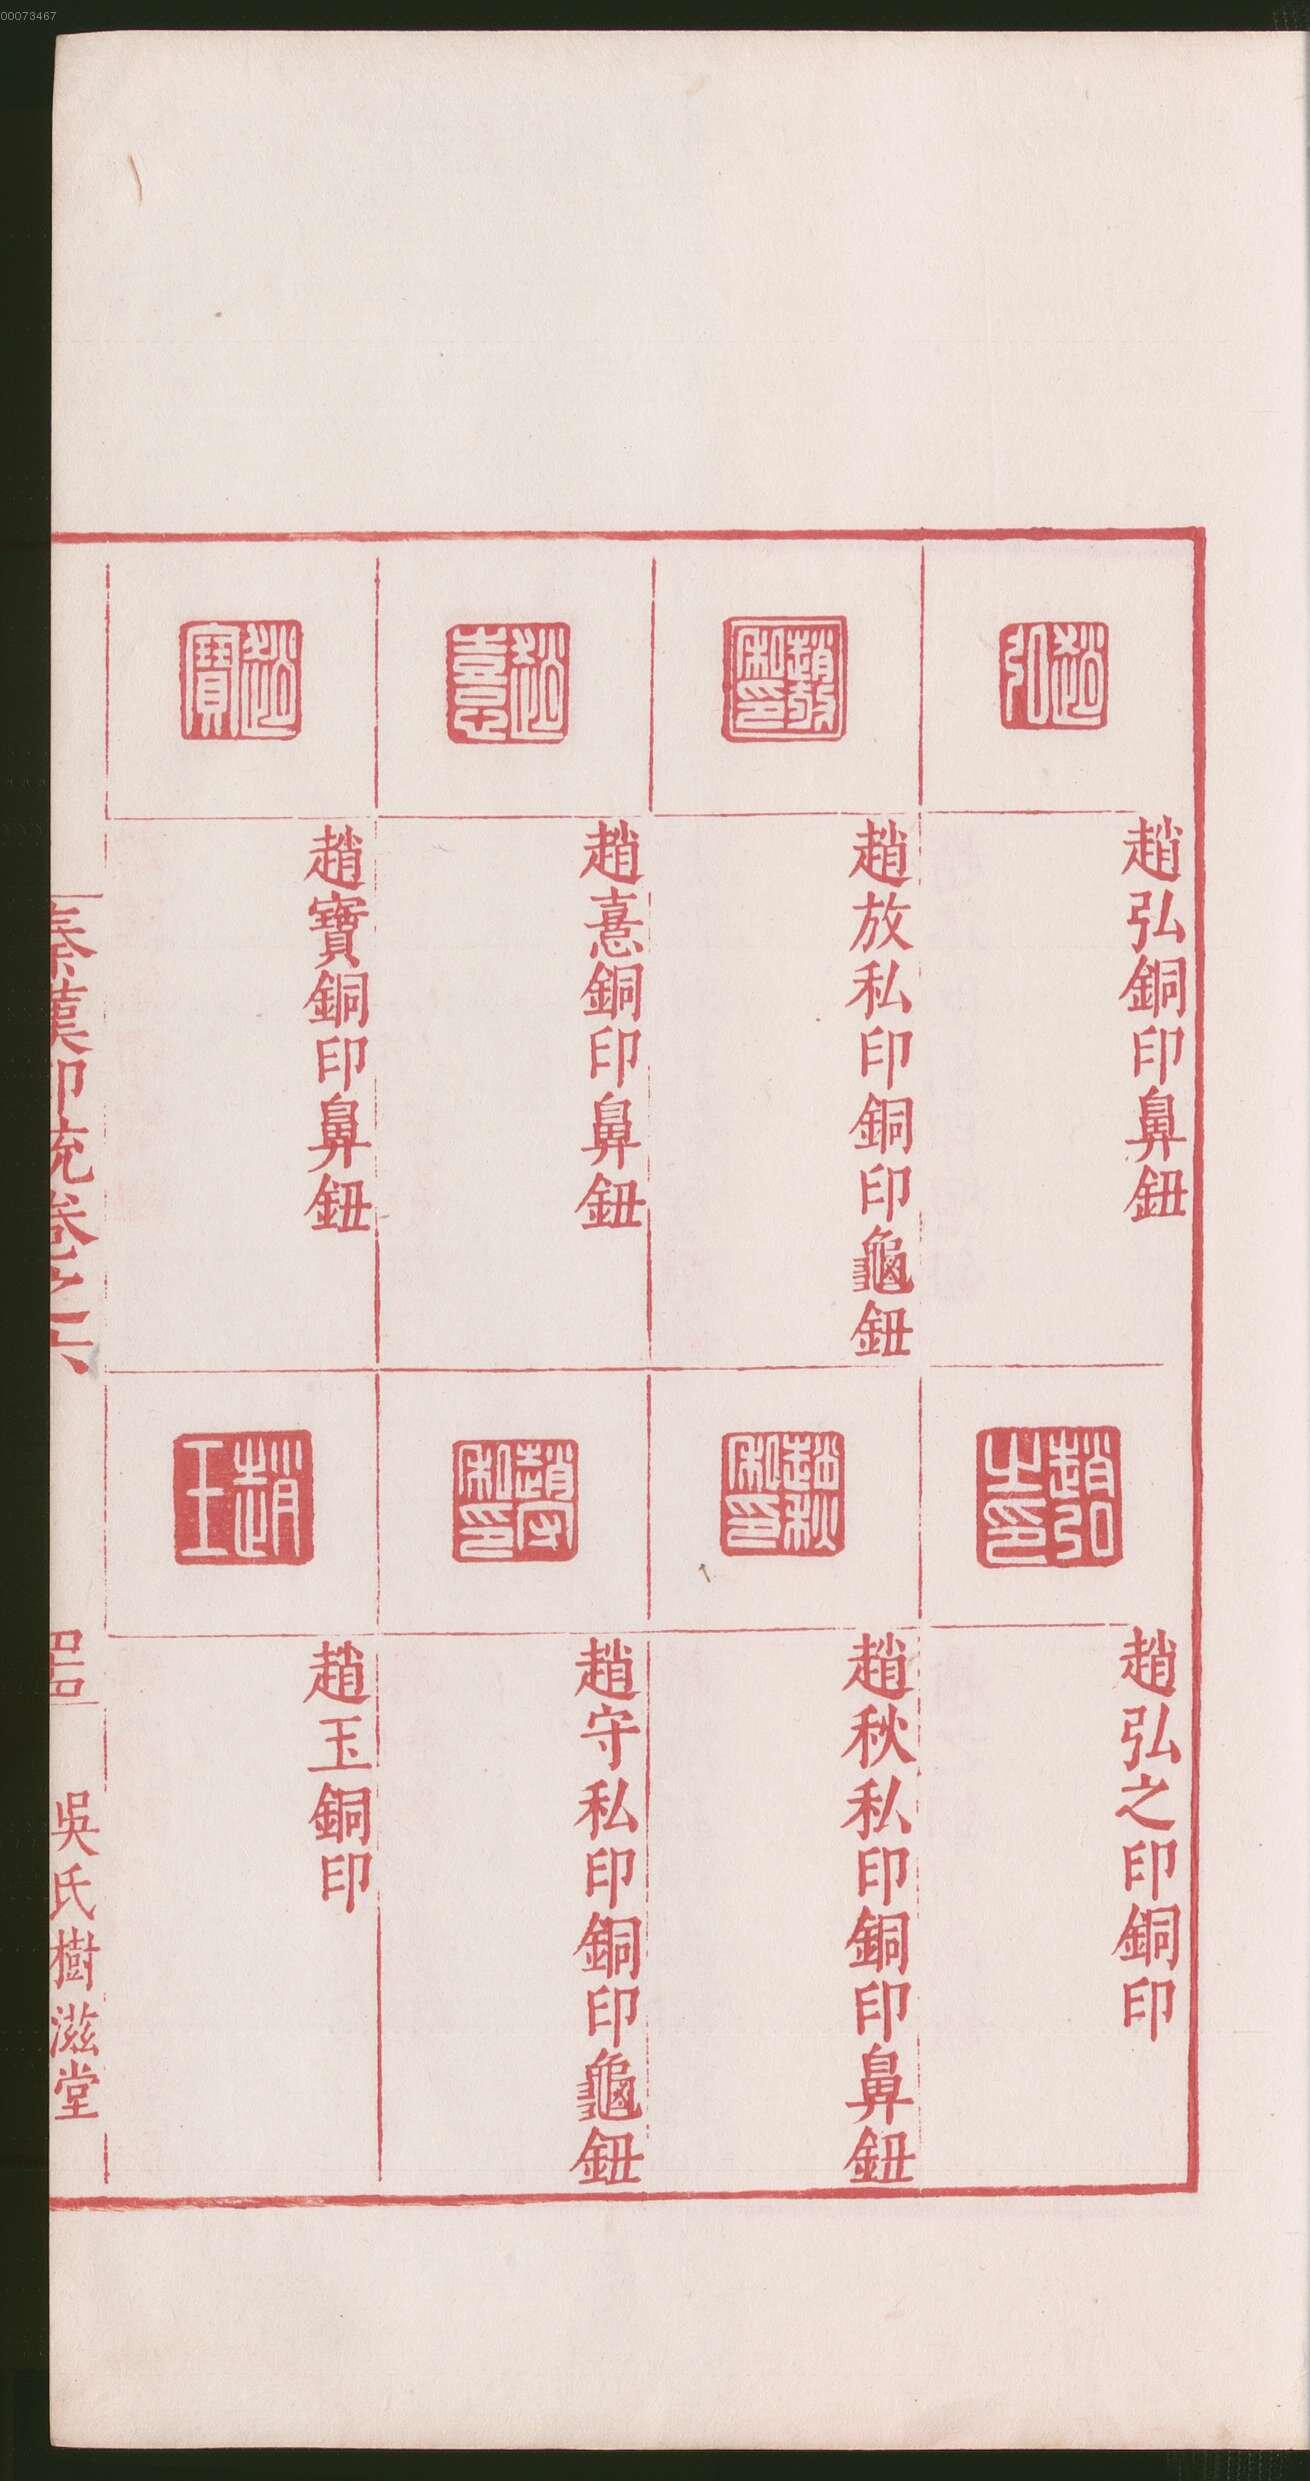 00073467
趙弘
趙弘銅印鼻鈕
趙放私印
趙放私印銅印龜鈕
趙憙
趙憙銅印鼻鈕
趙寶
趙寶銅印鼻鈕
趙弘之印
趙弘之印銅印
趙秋私印
趙秋私印銅印鼻鈕
趙守私印
趙守私印銅印龜鈕
趙玉
趙玉銅印
秦漢印統卷之六
吳氏樹滋堂